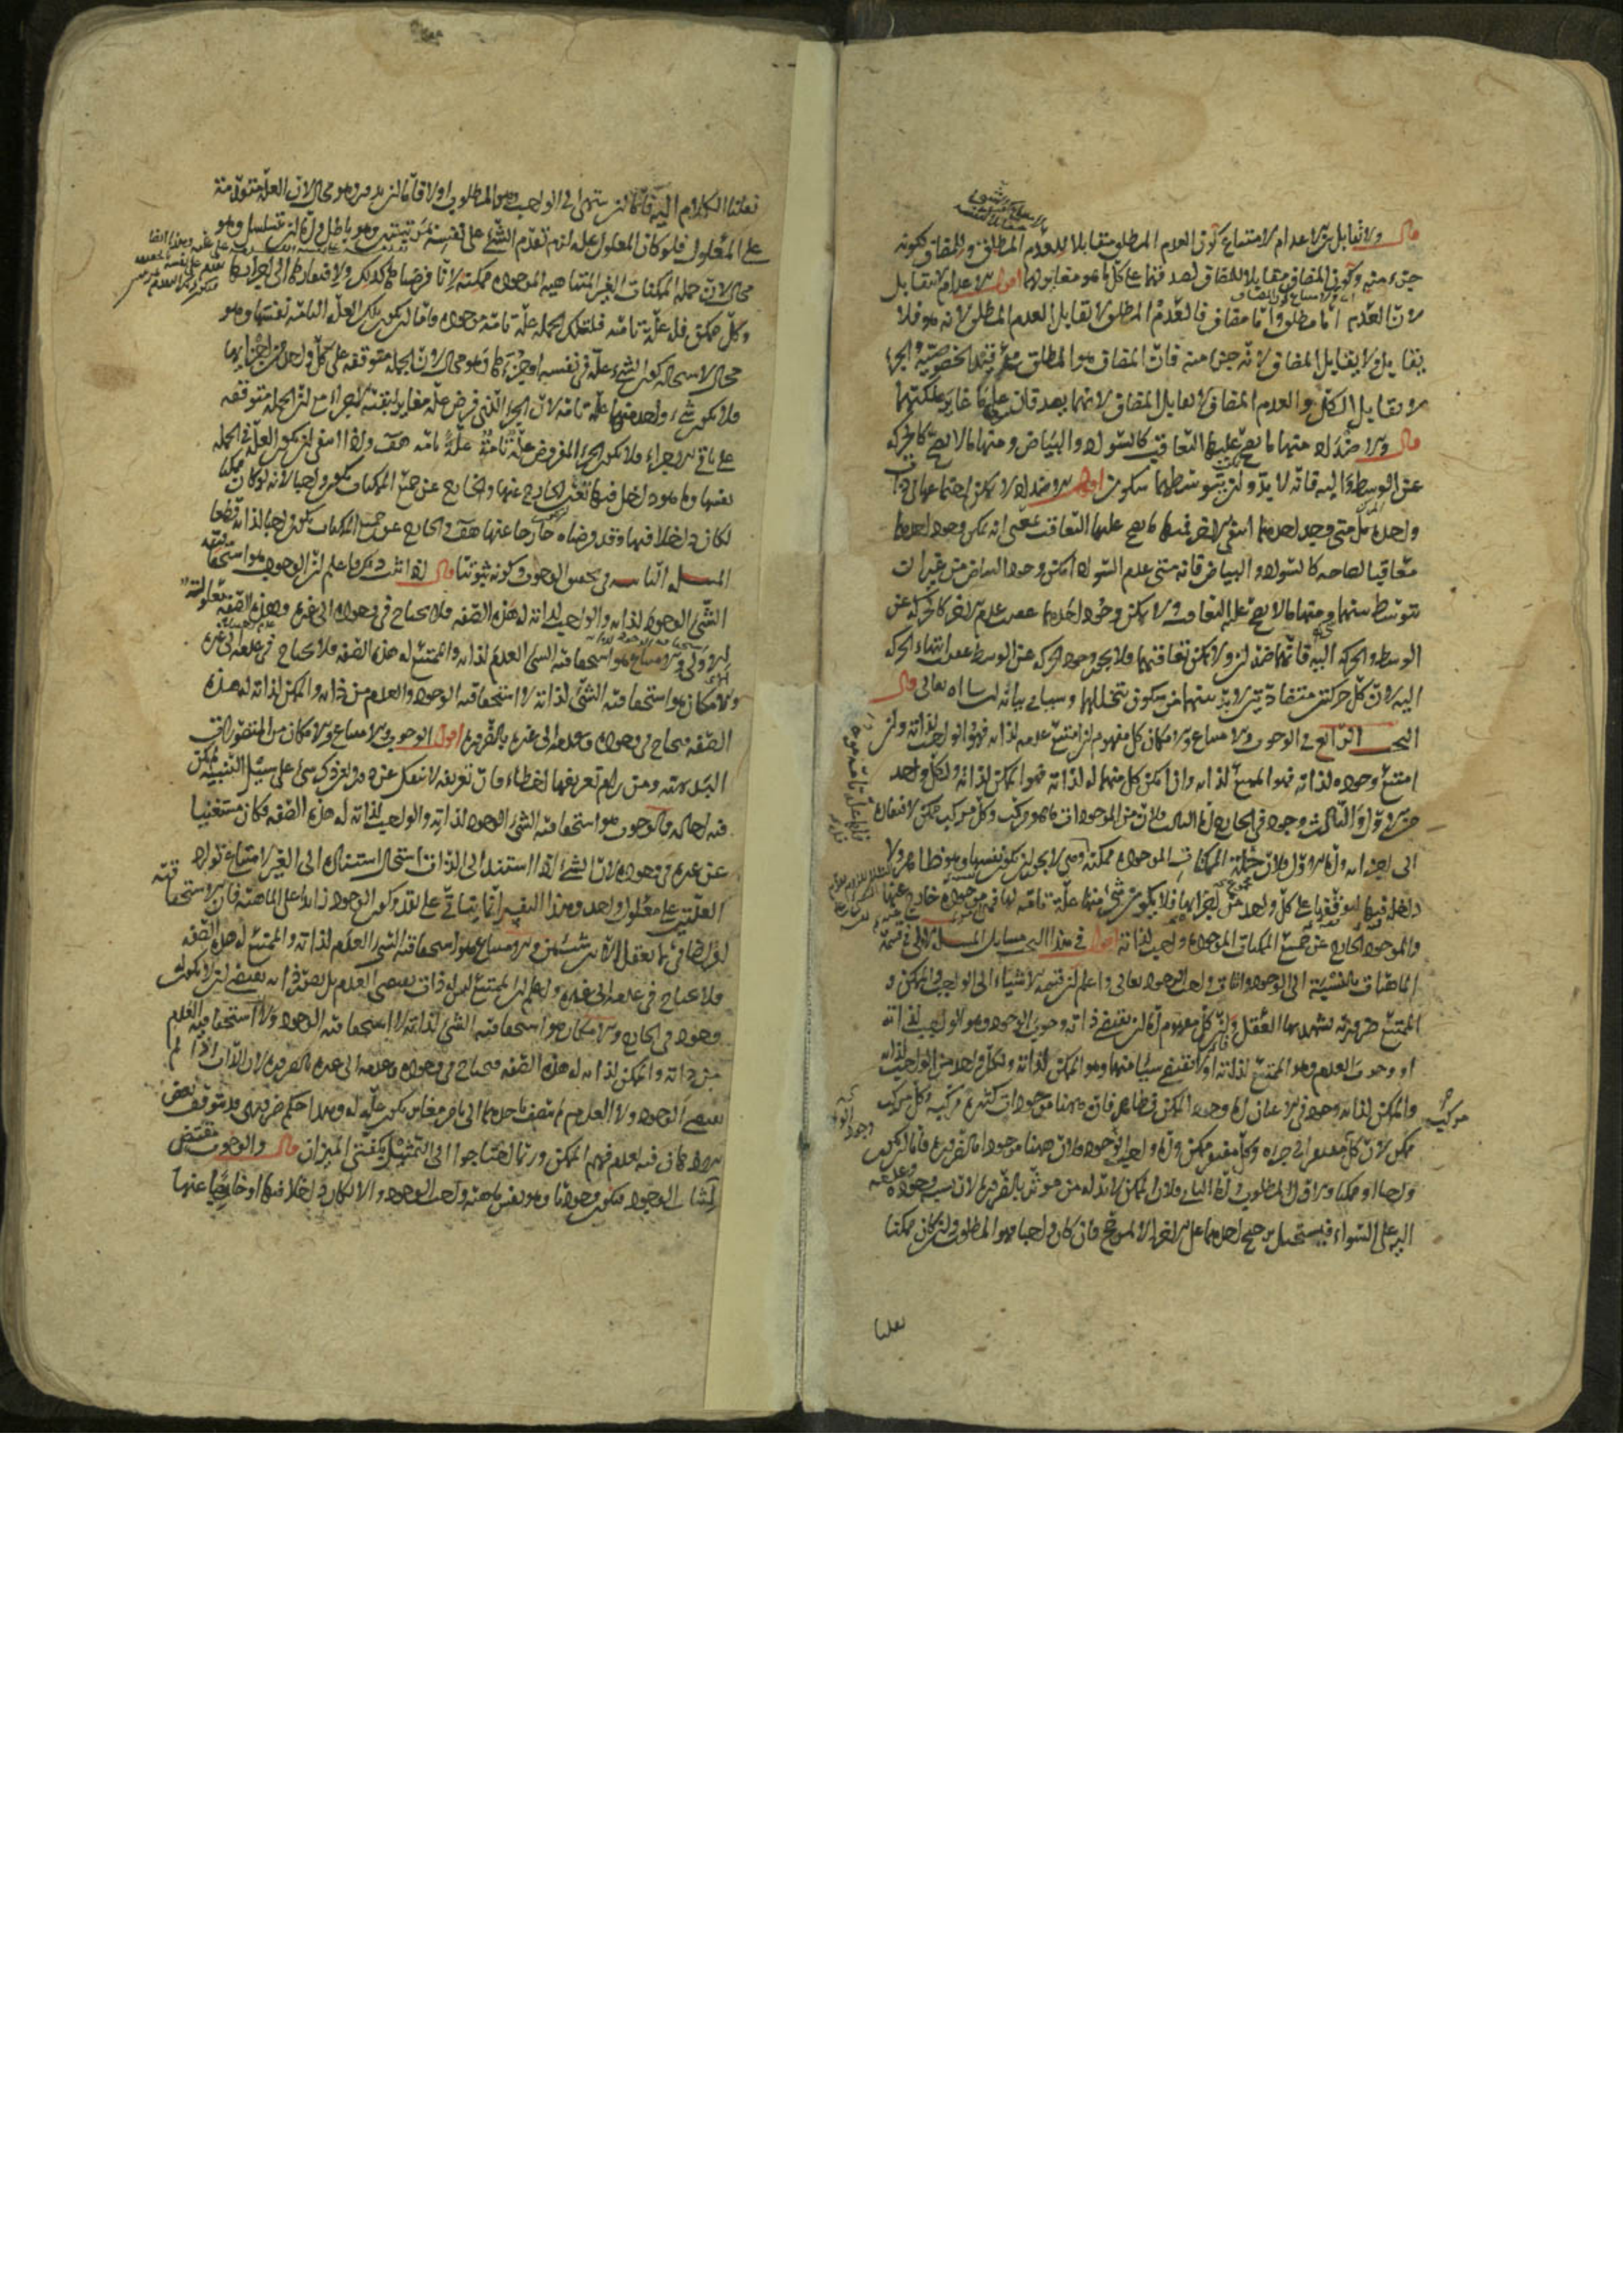 قال ولا تقابل بين الاعدام لامتناع كون العدم المطلق مقابلا للعدم المطلق وللمضاف لكونه
جزء منه وكون المضاف مقابلا للمضاف لصدقهما على كل ما هو مغاير لهما اقول الاعدام لا تتقابل
لان العدم اما مطلق واما مضاف فالعدم المطلق لا تقابل العدم المطلق لانه هو فلا
يقابله ولا يقابل المضاف لانه جزء منه فان المضاف هو المطلق مع قيد الخصوصية والجزء
لا تقابل الكل والعدم المضاف لا يقابل المضاف لانهما يصدقان على ما غاير ملكتهما
قال والاضداد منها ما يصح عليها التعاقب كالسواد والبياض ومنها ما لا يصح كالحركة
عن الوسط واليه فانه لا بد وان يتوسطهما سكون اقول الاضداد لا يمكن اجتماعهما في ذات
واحدة بل متى وجد احدهما انتفى الاخر فمنها ما يصح عليها التعاقب بمعنى انه يمكن وجود احدهما
متعاقبا لصاحبه كالسواد والبياض فانه متى عدم السواد امكن وجود البياض من غير ان
يتوسط بينهما ومنها ما لا يصح عليه التعاقب ولا يمكن وجود احدهما عقيب عدم الاخر كالحركة عن
الوسط والحركة اليه فانهما ضدان ولا يمكن تعاقبهما فلا يجوز وجود الحركة عن الوسط عقيب انتهاء الحركة
اليه لان كل حركتين متضادتين لا بد بينهما من سكون يتخللهما وسياتي بيانه ان شاء الله تعالى قال
البحث الرابع في الوجوب والامتناع والامكان كل مفهوم ان امتنع عدمه لذاته فهو الواجب لذاته وان
امتنع وجوده لذاته فهو الممتنع لذاته وان امكن كل منهما له لذاته فهو الممكن لذاته ولكل واحد
من الاول والثالث وجود في الخارج اما الثالث فلان من الموجودات ما هو مركب وكل مركب ممكن لافتقاره
الى اجزائه واما الاول فلان جملة الممكنات الموجودة ممكنة وهي لا يجوز ان تكون نفسها وهو ظاهر ولا
داخلا فيها لتوقفها على كل واحد من اجزائها فلا يكون شيء منها علة تامة لها فهي موجودة خارج عنها
والموجود الخارج عن جميع الممكنات الموجودة واجب لذاته اقول في هذا البحث مسائل المسئلة الاولى في قسمة
الماهيات بالنسبة الى الوجود واثبات واجب الوجود تعالى واعلم ان قسمة الاشياء الى الواجب والممكن و
الممتنع ضرورية يشهد بها العقل وان كل مفهوم اما ان يقتضي ذاته وجوب الوجود وهو الواجب لذاته
او وجوب العدم وهو الممتنع لذاته او لا تقتضي شيئا منهما وهو الممكن لذاته ولكل واحد من الواجب لذاته
والممكن لذاته وجود في الاعيان اما وجود الممكن فظاهر فان ههنا موجودات كثيرة مركبة وكل مركب
ممكن لان كل مركب مفتقر الى جزئه وكل مفتقر ممكن واما واجب الوجود فلان ههنا موجودا بالضرورة فاما ان يكون
واجبا او ممكنا والاول المطلوب واما الثاني فلان الممكن لا بد له من مؤثر بالضرورة لان نسبة وجوده وعدمه
اليه على السواء فيستحيل ترجيح احدهما على الاخر الا لمرجح فان كان واجبا فهو المطلوب وان كان ممكنا
نقلنا
نقلنا الكلام اليه فاما ان ينتهي الى الواجب وهو المطلوب او لا فاما ان يدور وهو محال لان العلة متقدمة
على المعلول فلو كان المعلول علة لزم تقدم الشيء على نفسه بمرتبتين وهو باطل واما ان يتسلسل وهو
محال لان جملة الممكنات الغير المتناهية الموجودة ممكنة لانا فرضناها كذلك ولافتقارها الى اجزائها
وكل ممكن فله علة تامة فلتلك الجملة علة تامة موجودة فاما ان يكون تلك العلة التامة نفسها وهو
محال لاستحالة كون الشيء علة في نفسه او جزءها وهو محال لان الجملة متوقفة على كل واحد من اجزائها
فلا يكون شيء واحد منها علة تامة لان الجزء الذي فرض علة مغاير لبقية الاجزاء مع ان الجملة متوقفة
على باقي الاجزاء فلا يكون الجزء المفروض علة تامة علة تامة هف واذا انتفى ان يكون العلة في الجملة
نفسها وما هو داخل فيها تعين الخارج عنها والخارج عن جميع الممكنات يكون واجبا لانه لو كان ممكنا
لكان داخلا فيها وقد فرضناه خارجا عنها هف والخارج عن جميع الممكنات يكون واجبا لذاته قطعا
المسئلة الثانية في تحقيق الوجوب وكونه ثبوتيا قال اذا ثبت ذلك فاعلم ان الوجوب هو استحقاقية
الشيء الوجود لذاته والواجب لذاته له هذه الصفة فلا يحتاج في وجوده الى غيره وهذه الصفة معلولة
للاولى والامتناع هو استحقاقية الشيء العدم لذاته والممتنع له هذه الصفة فلا يحتاج في عدمه الى غيره
والامكان هو استحقاقية الشيء لذاته لا استحقاقية الوجود والعدم من ذاته والممكن لذاته له هذه
الصفة يحتاج في وجوده وعدمه الى غيره بالضرورة اقول الوجوب والامتناع والامكان من المتصورات
البديهية ومن رام تعريفها اخطاء فان تعريفه لا ينفك عن دور نعم قد يذكر شيء على سبيل التنبيه يمكن
فيه المحاكمة فالوجوب هو استحقاقية الشيء الوجود لذاته والواجب لذاته له هذه الصفة فكان مستغنيا
عن غيره في وجوده لان الشيء اذا استند الى الذات استحال استناده الى الغير لامتناع توارد
العلتين على معلول واحد وهذا التفسير انما يتاتى على تقدير كون الوجود زائدا على الماهية فان الاستحقاقية
لفظ اضافي انما يعقل الا بين شيئين والامتناع هو استحقاقية الشيء العدم لذاته والممتنع له هذه الصفة
فلا يحتاج في عدمه الى غيره واعلم ان الممتنع ليس له ذات يقتضي العدم بل تصور ذاته يقتضي ان لا يكون له
وجود في الخارج والامكان هو استحقاقية الشيء لذاته لا استحقاقية الوجود ولا استحقاقية العدم
من ذاته والممكن لذاته له هذه الصفة فيحتاج في وجوده وعدمه الى غيره بالضرورة لان الذات اذا لم
يقتض الوجود ولا العدم لم يتصف باحدهما الا بامر مغاير يكون علة له وهذا حكم ضروري وقد يتوقف بعض
الاذهان فيه لعدم فهم الممكن وربما احتاجوا الى التمثيل بكفتي الميزان قال والوجوب مقتضي
لثبات الوجود فيكون وجوديا وهو نفس ماهية واجب الوجود والا لكان داخلا فيها او خارجيا عنها